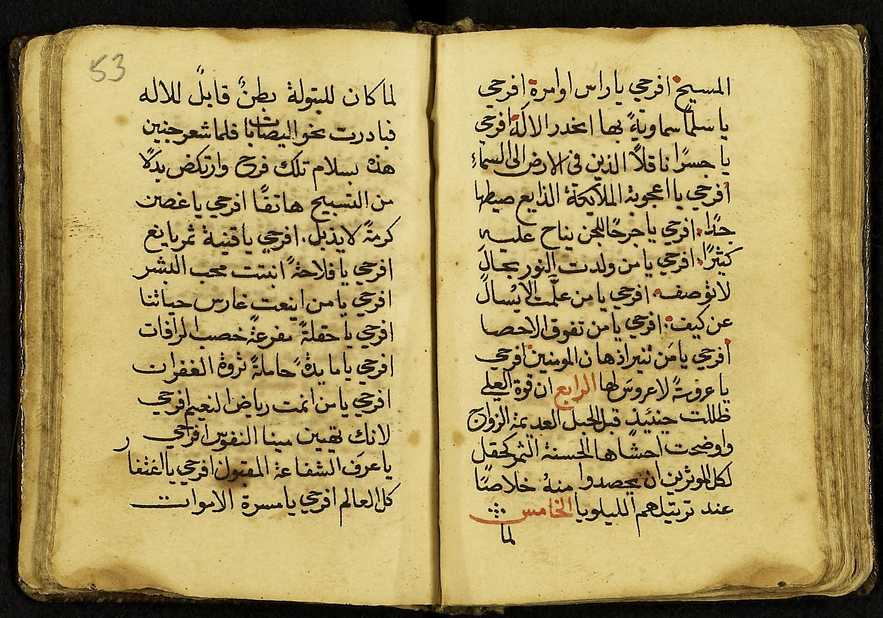 المسيح افرحي ياراس اوامرة افرحي
يا سلماً سماويةً بها انحدر الاله افرحي
يا جسرًا ناقلاً الذين في الارض الى السماء
افرحي يا اعجوبة الملايكة الذايع صيطها
جدًا. افرحي يا جرحًا للجن يناح عليه
كثيرًا. افرحي يا من ولدت النور بحالٍ
لا توصف. افرحي يا من علّمت الا يُسال
عن كيف. افرحي يا من تفوق الاحصا
افرحي يا من تنير اذهان المومنين افرحي
يا عروسةً لا عروس لها الرابع ان قوة العلي
ظللت حينيذٍ قبل الحبل العديمة الزواج
واوضحت احشاها الحسنة الثمر كحقل
لكل الموثرين ان يحصدوا منه خلاصًا
عند ترتيلهم الليلويا الخامس
لما
53
لما كان للبتولة بطنٌ قابلٌ للاله
فبادرت نحو اليصابات فلما شعر جنين
هذه بسلام تلك فرح وارتكض بدلاً
من التسبيح هاتفًا افرحي يا غصن
كرمةً لا يذبل. افرحي يا قنية ثمر يانع
افرحي يا فلاحةً انبتت محب البشر
افرحي يا من اينعت غارس حياتنا
افرحي يا حقلةً مفرعةً خصب الرافات
افرحي يا مايدةً حاملةً ثروة الغفرات
افرحي يا من انمت رياض النعيم افرحي
لانك تهيين مينا النفوس افرحي
يا عرف الشفاعة المقبول افرحي يا اغتفار
كل العالم افرحي يا مسرة الاموات